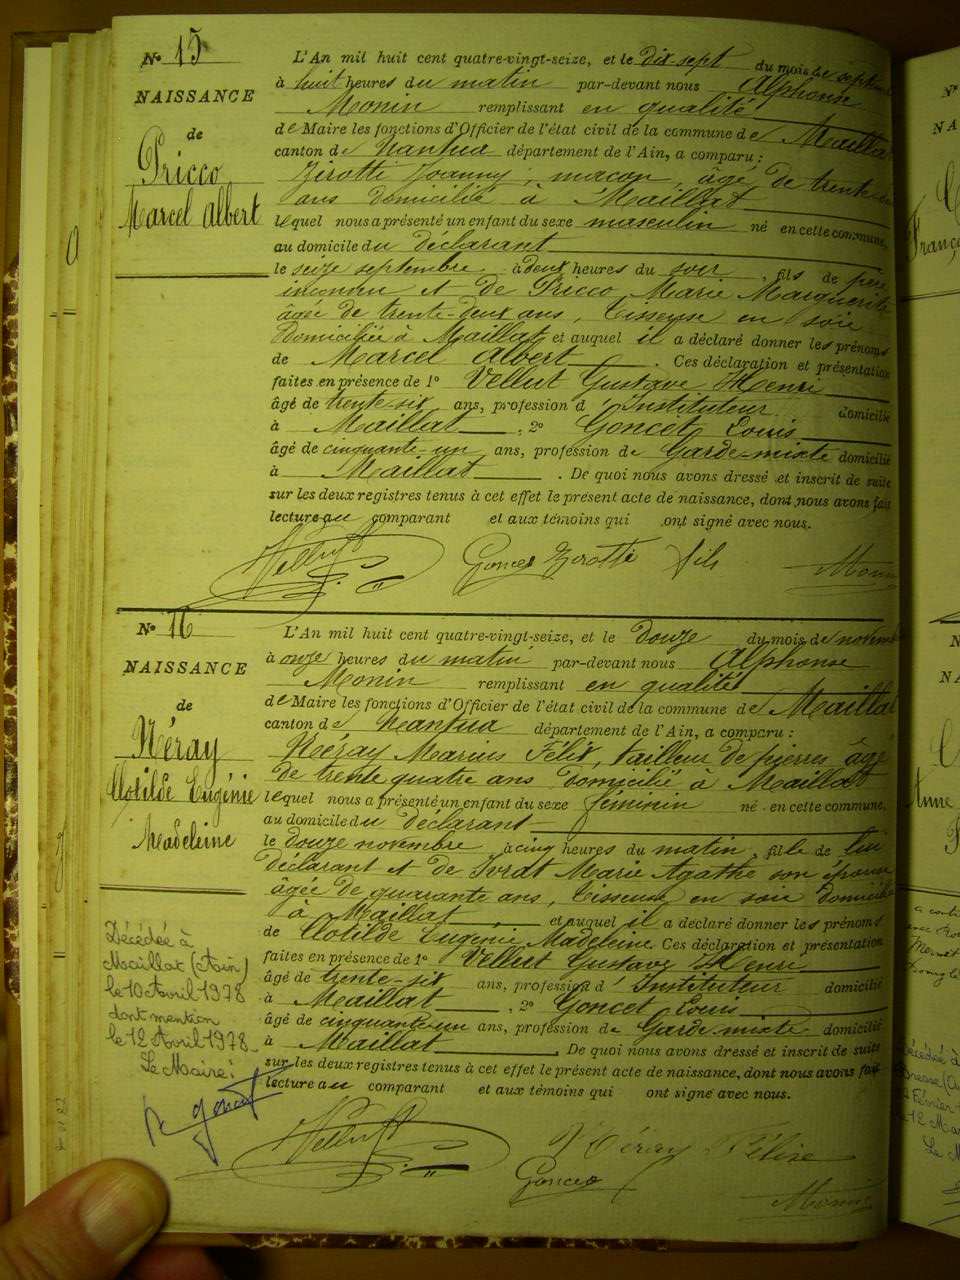 No 15
NAISSANCE
de
Pricco
Marcel Albert
L'An mil huit cent quatre-vingt-seize, et le dix-sept du mois de septem
à huit heures du matin par-devant nous Alphonse
Monin remplissant en qualité
de Maire les fonctions d'Officier de l'état civil de la commune de Maillat
canton de Nantua département de l'Ain, a comparu :
Zirotti Joanny, maçon, âgé de trente
ans domicilié à Maillat
lequel nous a présenté un enfant du sexe masculin né en cette commune,
au domicile du déclarant
le seize septembre à deux heures du soir, fils de père
inconnu et de Pricco Marie Marguerite
âgée de trente-deux ans, tisseuse en soie
domiciliée à Maillat et auquel il a déclaré donner les prénoms
de Marcel Albert. Ces déclaration et présentation
faites en présence de 1o Vellut Gustave Henri
âgé de trente-six ans, profession d'Instituteur domicilié
à Maillat, 2o Goncet Louis
âgé de cinquante-un ans, profession de Garde-mixte domicilié
à Maillat. De quoi nous avons dressé et inscrit de suite
sur les deux registres tenus à cet effet le présent acte de naissance, dont nous avons fait
lecture au comparant et aux témoins qui ont signé avec nous.
Vellut Goncet Zirotti fils Monin
No 16
NAISSANCE
de
Néray
Clotilde Eugénie
Madeleine
L'An mil huit cent quatre-vingt-seize, et le douze du mois de novem
à onze heures du matin par-devant nous Alphonse
Monin remplissant en qualité
de Maire les fonctions d'Officier de l'état civil de la commune de Maillat
canton de Nantua département de l'Ain, a comparu :
Néray Marius Félix, tailleur de pierres âgé
de trente quatre ans domicilié à Maillat
lequel nous a présenté un enfant du sexe féminin né en cette commune,
au domicile du déclarant
le douze novembre à cinq heures du matin, fille de lui
déclarant et de Ivrat Marie Agathe son épouse
âgée de quarante ans, tisseuse en soie domicilié
à Maillat et auquel il a déclaré donner les prénoms
de Clotilde Eugénie Madeleine Ces déclaration et présentation
faites en présence de 1o Vellut Gustave Henri
âgé de trente-six ans, profession d'Instituteur domicilié
à Maillat, 2o Goncet Louis
âgé de cinquante-un ans, profession de Garde-mixte domicilié
à Maillat. De quoi nous avons dressé et inscrit de suite
sur les deux registres tenus à cet effet le présent acte de naissance, dont nous avons fait
lecture au comparant et aux témoins qui ont signé avec nous.
Décédée à
Maillat (Ain)
le 10 Avril 1978
dont mention
le 12 Avril 1978
Le Maire :
Vellut Néray Félix
Goncet Monin